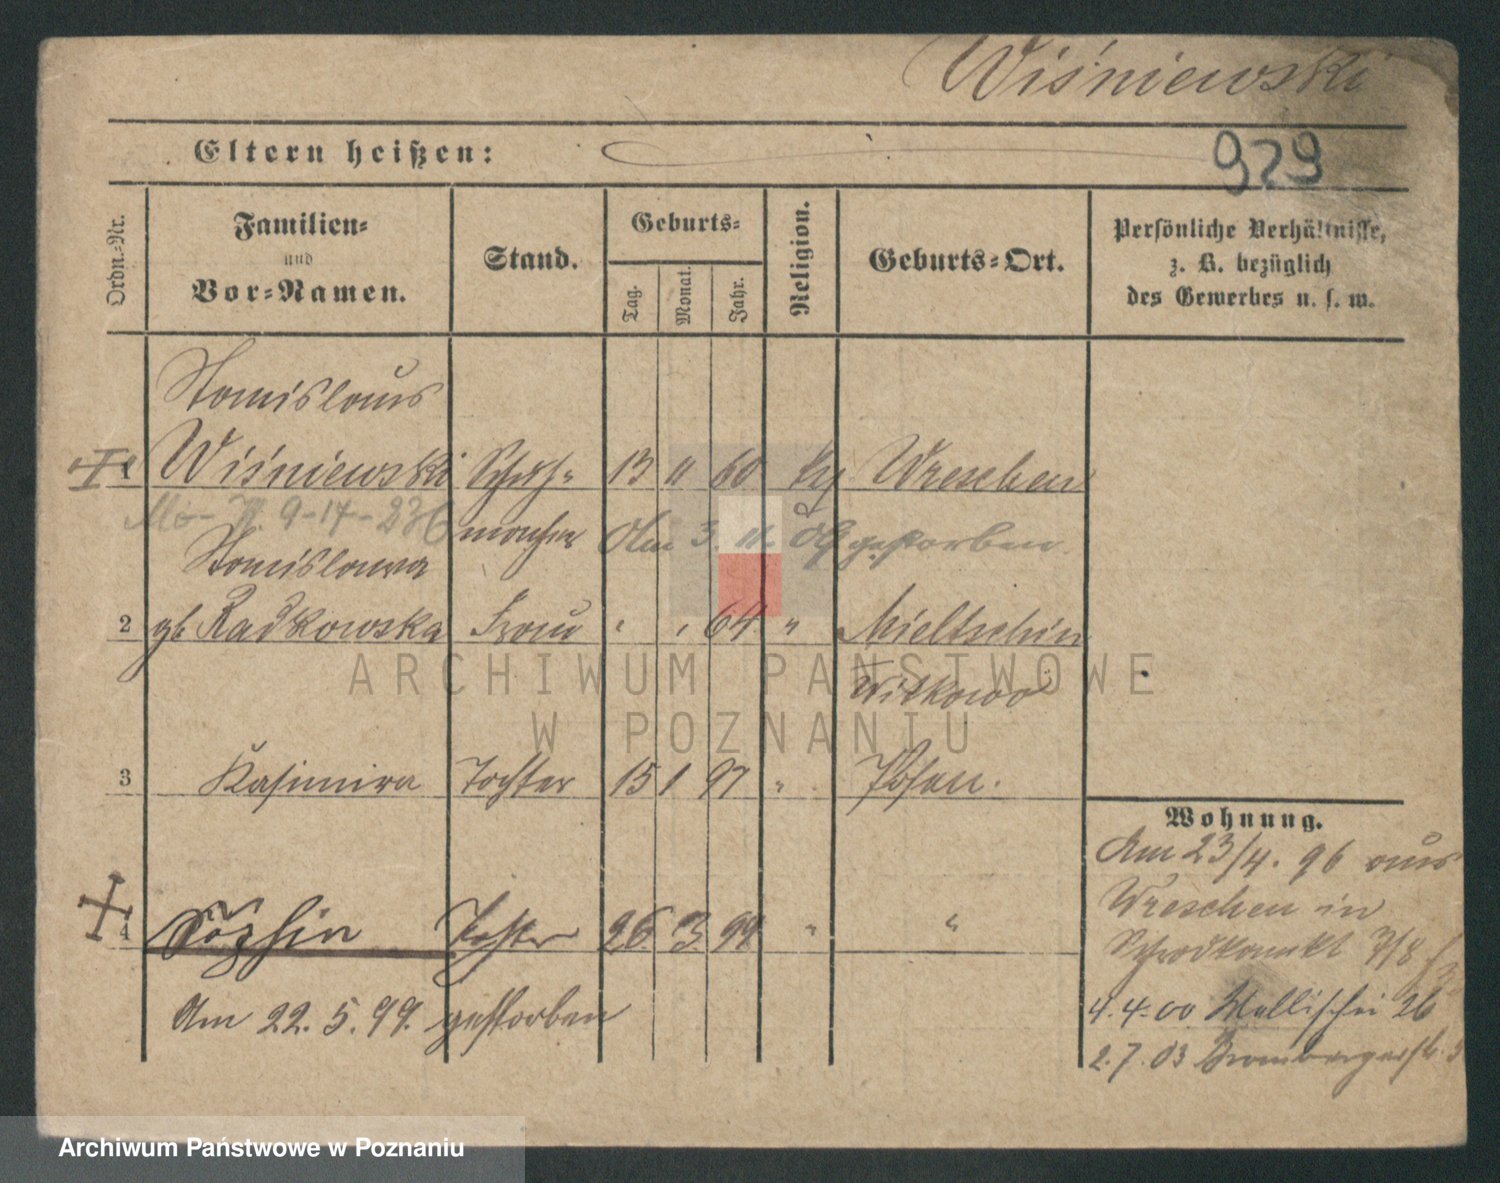 Wiśniewski
Eltern heißen:
929
Ordn.-Nr.
Familien-
und
Vor-Namen.
Stand.
Geburts-
Tag.
Monat.
Jahr.
Religion.
Geburts-Ort.
Persönliche Verhältnisse,
z. B. bezüglich
des Gewerbes u. s. w.
Stanislaus
Wiśniewski Schuh- 13 11 60 Wreschen
macher Am 3. 11. gestorben
Stanislawa
2 gb Radkowska Frau " " 64 " Mieltschin
Witkowo
3 Kasimira Tochter 15 1 97 " Posen.
Wohnung.
Am 23/4. 96 aus
Wreschen in
Schrodkamkt 7/8
4 Sophie Tochter 26 3 99 " "
Am 22. 5. 99. gestorben
4. 4. 00 Wallischei 26
2. 7. 03 Brombergerstr. 3
ARCHIWUM PAŃSTWOWE
W POZNANIU
Archiwum Państwowe w Poznaniu